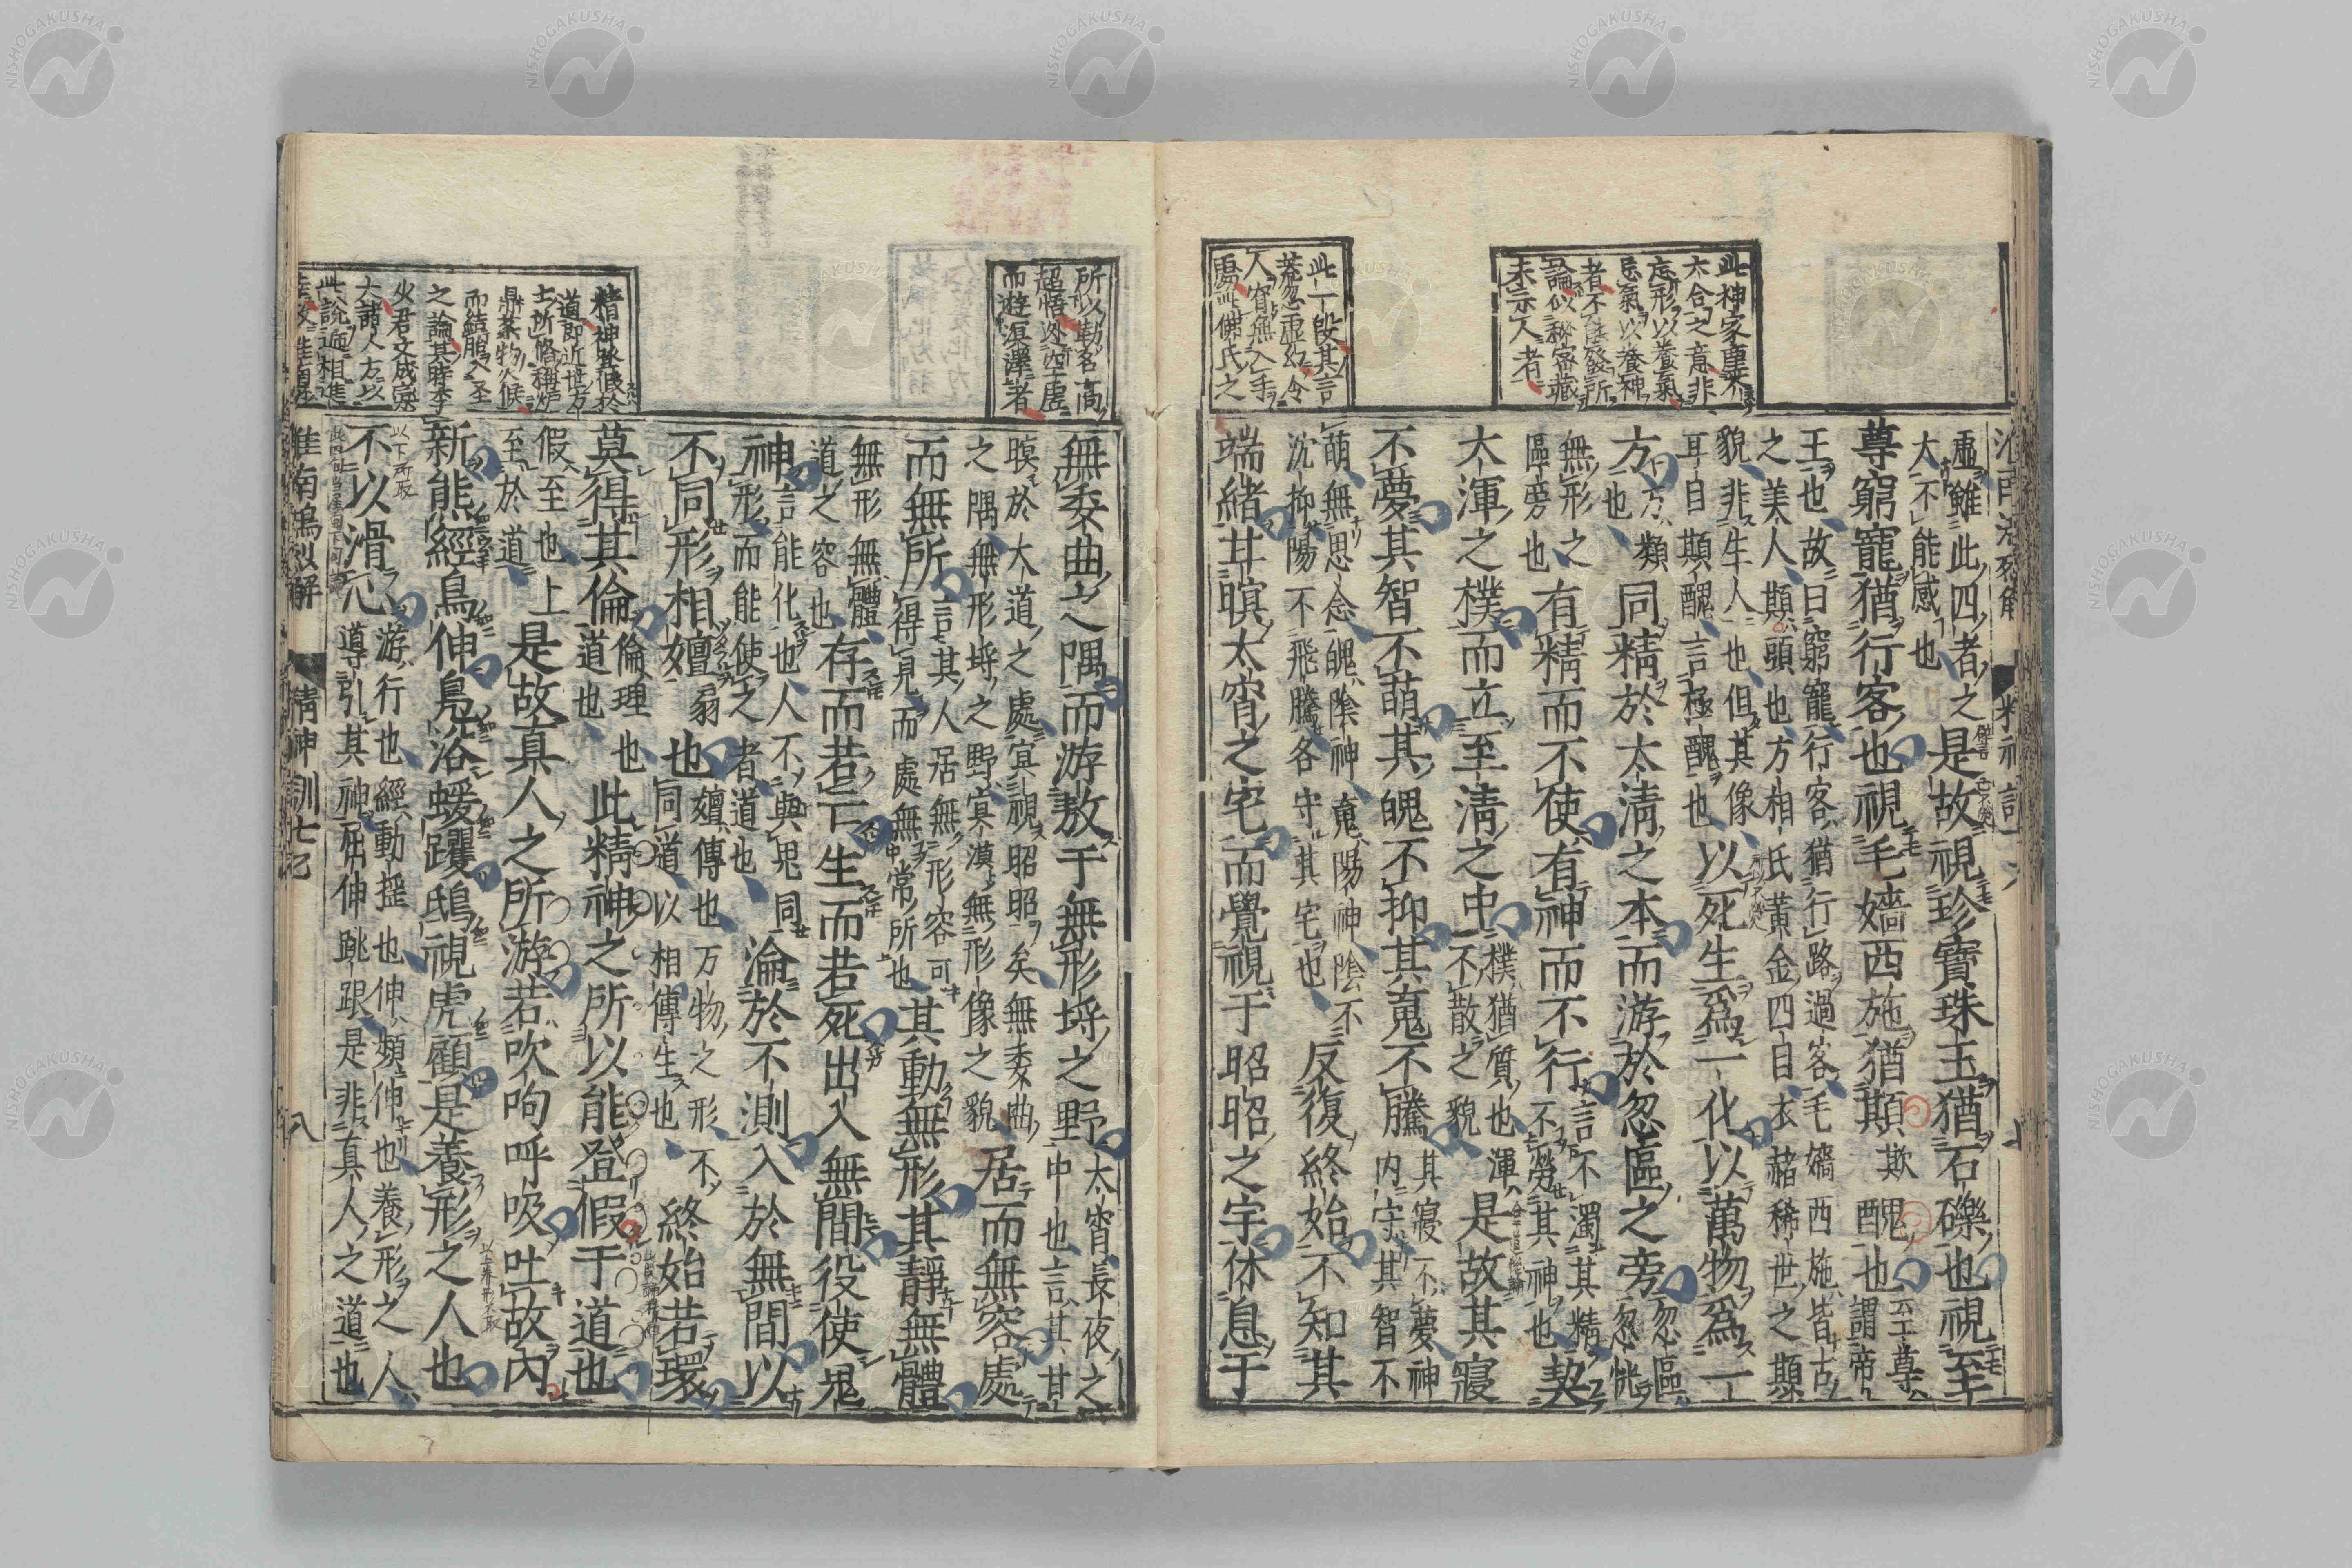 此神家塵粃
太合之意非
忘形以養氣
忘氣以養神
者不能發所
論似秘密藏
未示人者
此一段其言
荒忽虛幻令
人窅無入手
處此佛氏之
虛雖此四者之
大不能感也
是故視珍寶珠玉猶石礫也視至
尊窮寵猶行客也視毛嬙西施猶䫏醜也
至尊
謂帝
王也故曰窮寵行客猶行路過客毛嬙西施皆古
之美人䫏頭也方相氏黃金四目衣赭稀世之䫏
貌非生人也但其像
耳目䫏醜言極醜也
以死生爲一化以萬物爲一
方
方類
也
同精於太淸之本而游於忽區之旁
忽區
忽恍
無形之
區旁也
有精而不使有神而不行
言不濁其精
不勞其神也
契
大渾之樸而立至淸之中
樸猶質也渾
不散之貌
是故其寢
不夢其智不萌其魄不抑其䰟不騰
其寢不夢神
內守其智不
萌無思念魄陰神䰟陽神陰不
沈抑陽不飛騰各守其宅也
反復終始不知其
端緒甘瞑太宵之宅而覺視于昭昭之宇休息于
所以動客高
超悟迹空虛
而遊溟涬者
精神登假於
道即近世方
士所脩稱爐
鼎藥物火候
而結服入聖
之論其時李
少君文成五
大諸人方以
此說遞相進
無委曲之隅而游敖于無形埒之野
太宵長夜之
中也言其甘
瞑於大道之處冥視昭昭矣無委曲
之隅無形埒之野冥漠無形像之貌
居而無容處
而無所
言其人居無形容可
得見而處無常所也
其動無形其靜無體
無形無體
道之容也
存而若亡生而若死出入無間役使鬼
神
言能化也人不與鬼同
形而能使之者道也
淪於不測入於無間以
不同形相嬗也
嬗傳也万物之形不
同道以相傳生也
終始若環
莫得其倫
倫理也
道也
此精神之所以能登假于道也
假至也上
至於道
是故真人之所游若吹呴呼吸吐故內
新熊經鳥伸鳧浴蝯躩鴟視虎顧是養形之人也
不以滑心
游行也經動搖也伸頻伸也養形之人
導引其神屈伸跳踉是非真人之道也
淮南鴻烈解 精神訓七 八
NISHOGAKUSHA